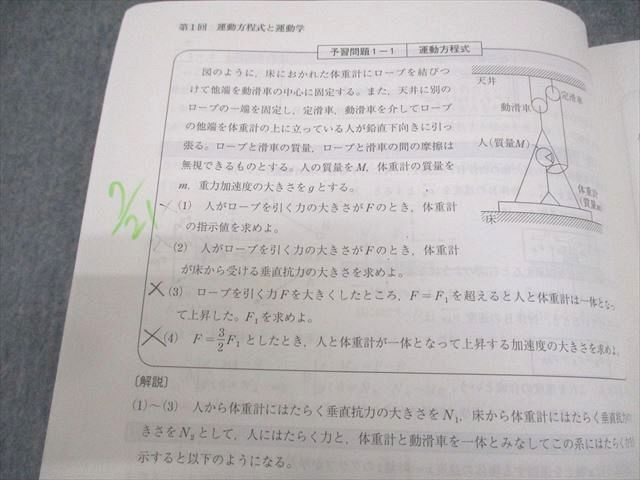 第1回　運動方程式と運動学
予習問題1－1　運動方程式
図のように，床におかれた体重計にロープを結びつ
けて他端を動滑車の中心に固定する。また，天井に別の
ロープの一端を固定し，定滑車，動滑車を介してロープ
の他端を体重計の上に立っている人が鉛直下向きに引っ
張る。ロープと滑車の質量，ロープと滑車の間の摩擦は
無視できるものとする。人の質量をM，体重計の質量を
m，重力加速度の大きさをgとする。
(1)　人がロープを引く力の大きさがFのとき，体重計
の指示値を求めよ。
(2)　人がロープを引く力の大きさがFのとき，体重計
が床から受ける垂直抗力の大きさを求めよ。
(3)　ロープを引く力Fを大きくしたところ，F＝F₁を超えると人と体重計は一体となっ
て上昇した。F₁を求めよ。
(4)　F＝3/2F₁としたとき，人と体重計が一体となって上昇する加速度の大きさを求めよ。
天井
定滑車
動滑車
人(質量M)
体重計
(質量m)
床
〔解説〕
(1)～(3)　人から体重計にはたらく垂直抗力の大きさをN₁，床から体重計にはたらく垂直抗力の
きさをN₂として，人にはたらく力と，体重計と動滑車を一体とみなしてこの系にはたらく力を
示すると以下のようになる。